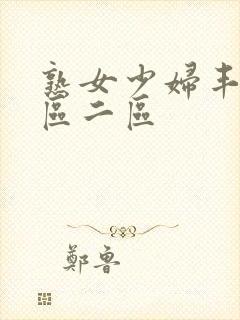 熟女少婦丰
區二區
鄭魯